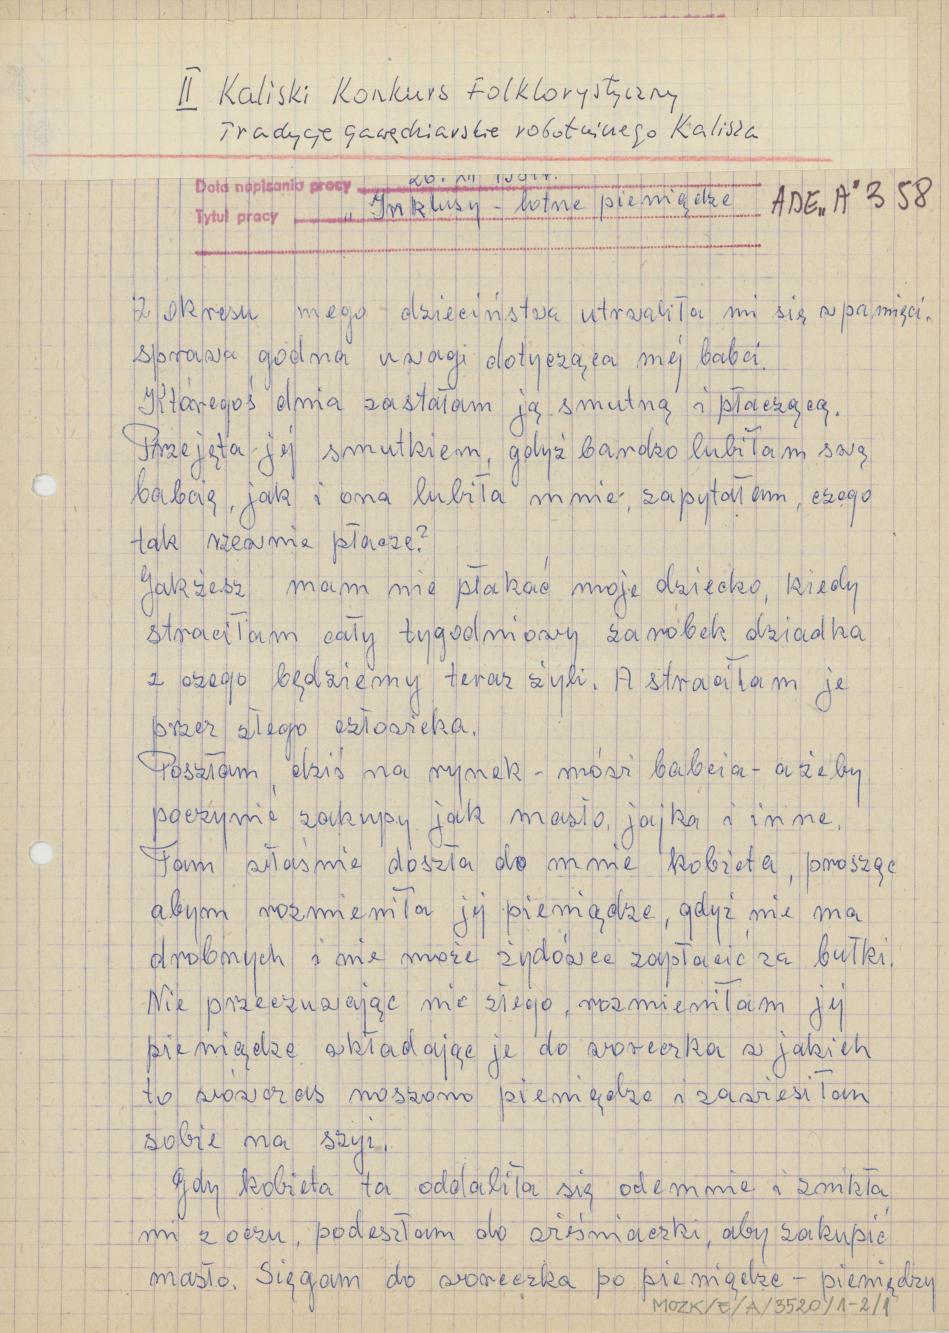 II Kaliski Konkurs Folklorystyczny
Tradycje gawędziarskie robotniczego Kalisza
Data napisania pracy 20. XII 1981r.
Tytuł pracy „Inklusy - lotne pieniądze
ADE„A" 358
Z okresu mego dzieciństwa utrwaliła mi się w pamięci.
sprawa godna uwagi dotycząca mej babci.
Któregoś dnia zastałam ją smutną i płaczącą.
Przejęta jej smutkiem, gdyż bardzo lubiłam swą
babcią, jak i ona lubiła mnie, zapytałam, czego
tak rzewnie płacze?
Jakżesz mam nie płakać moje dziecko, kiedy
straciłam cały tygodniowy zarobek dziadka
z czego będziemy teraz żyli. A straciłam je
przez złego człowieka.
Poszłam dziś na rynek - mówi babcia - ażeby
poczynić zakupy jak masło, jajka i inne.
Tam właśnie doszła do mnie kobieta, prosząc
abym rozmieniła jej pieniądze, gdyż nie ma
drobnych i nie może żydówce zapłacić za bułki.
Nie przeczuwając nic złego, rozmieniłam jej
pieniądze wkładając je do woreczka w jakich
to wówczas noszono pieniądze i zawiesiłam
sobie na szyi.
Gdy kobieta ta oddaliła się odemnie i znikła
mi z oczu, podeszłam do wieśniaczki, aby zakupić
masło. Sięgam do woreczka po pieniądze - pieniędzy
MOZK/E/A/3520/1-2/1